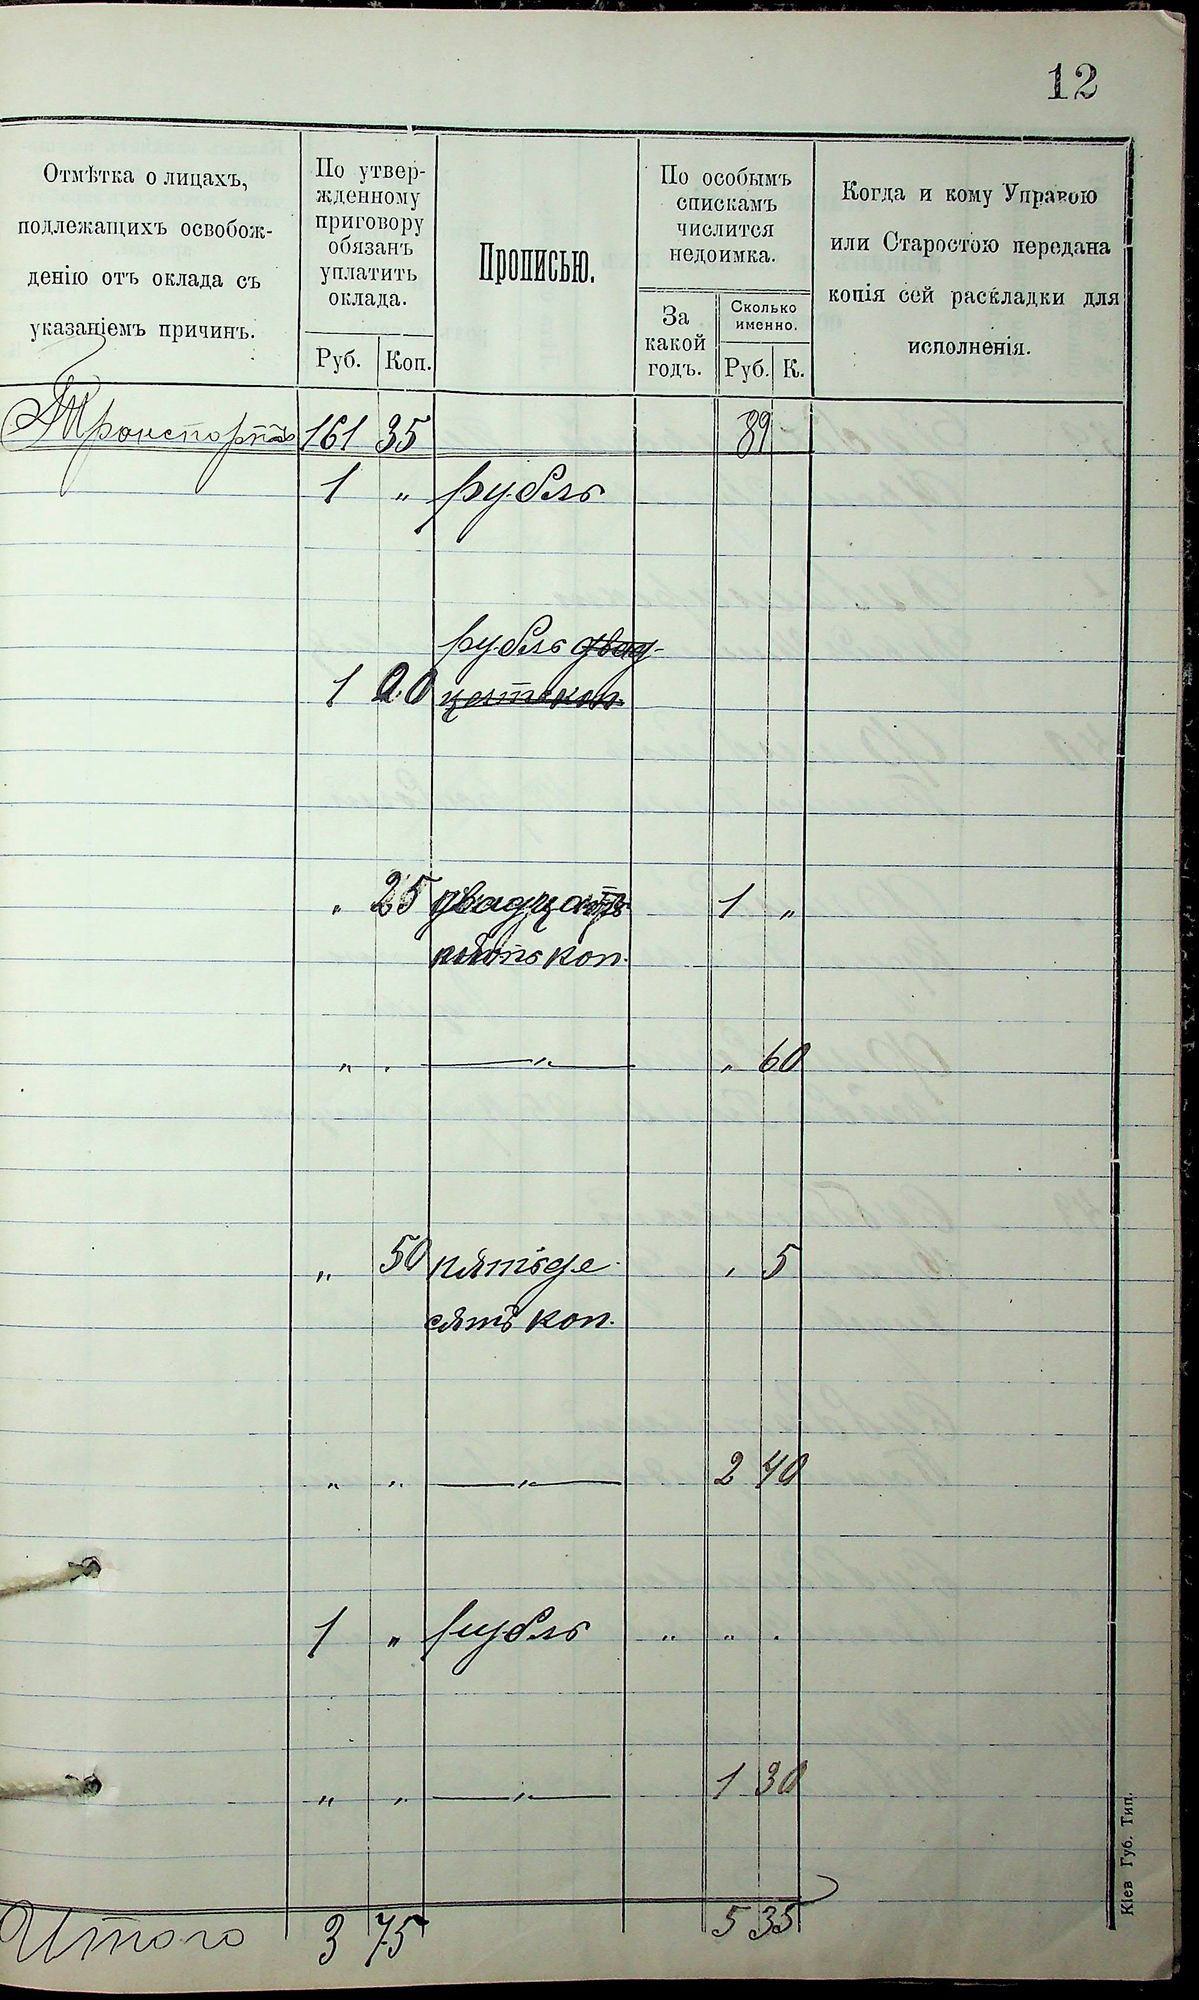 12
Отмѣтка о лицахъ,
подлежащихъ освобож-
денію отъ оклада съ
указаніемъ причинъ.
По утвер-
жденному
приговору
обязанъ
уплатить
оклада.
Руб. Коп.
Прописью.
По особымъ
спискамъ
числится
недоимка.
За
какой
годъ.
Сколько
именно.
Руб. К.
Когда и кому Управою
или Старостою передана
копія сей раскладки для
исполненія.
Транспортъ 161 35 39
1 " рубль
рубль двад-
1 20 цать коп.
" 25 двадцать 1 "
пять коп.
" " — " — " 60
" 50 пятьде- " 5
сятъ коп.
" " — " — 2 40
1 " рубль " " "
" " — " — 1 30
Итого 3 75 5 35
Кіев Губ. Тип.